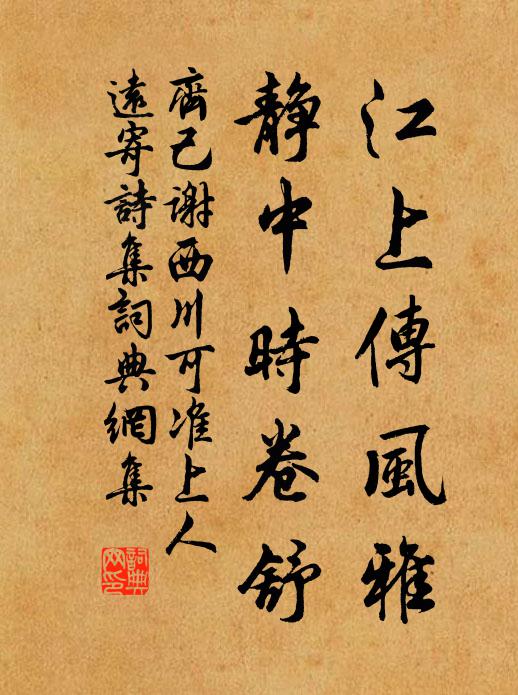 江上傳風雅
靜中時卷舒
齊己謝西川可准上人
遠寄詩集詞典網集
詞典網印